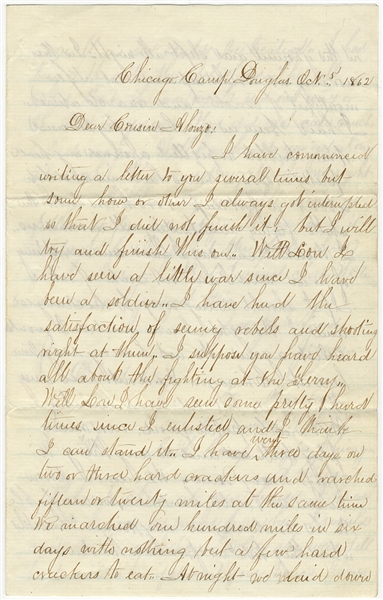 Chicago, Camp Douglas. Oct. 5" 1862
Dear Cousin Alonzo;
I have commenced
writing a letter to you several times but
some how or other I always got interupted
so that I did not finish it. but I will
try and finish this on.. Well Lon I
have seen a little war since I have
been a soldier.. I have had the
satisfaction of seeing rebels and shooting
right at them.. I suppose you have heard
all about the fighting at the Ferry..
Well Lon I have seen some pretty hard
times since I enlisted and I think
I can stand it.. I have went three days on
two or three hard crackers and marched
fifteen or twenty miles at the same time
We marched one hundred miles in six
days with nothing but a few hard
crackers to eat. At night we laid down